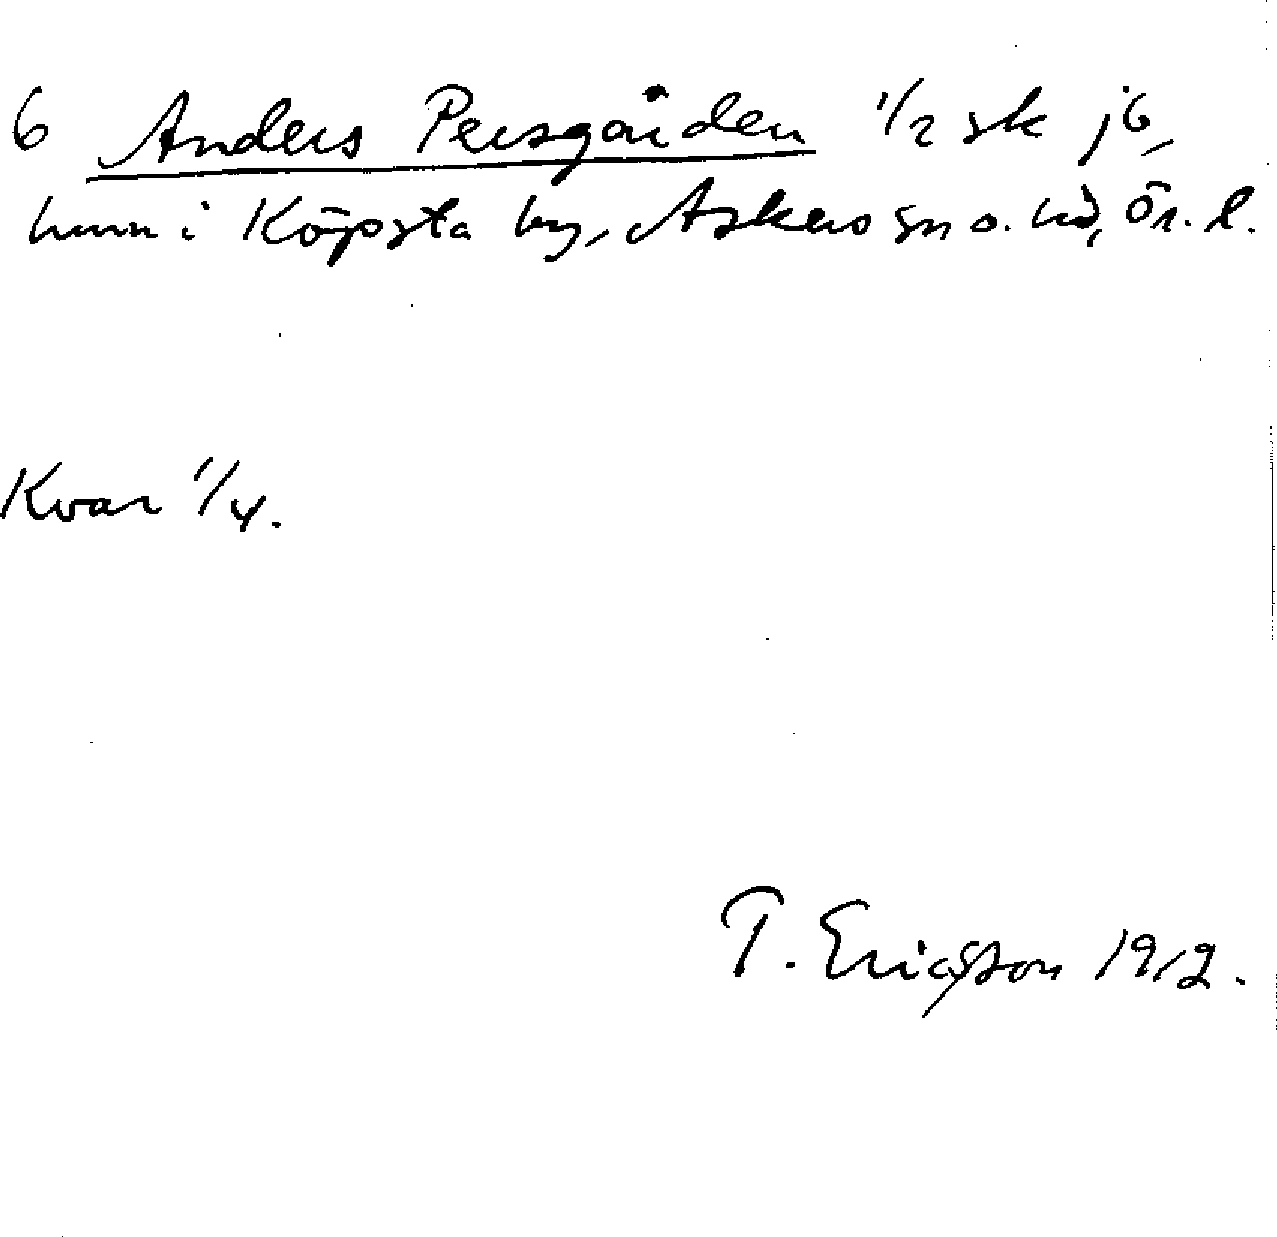 6 Anders Persgården 1/2 sk jb,
hmn i Köpsta by, Askers sn o. hd, Ör. l.
Kvar 1/4.
T. Ericsson 1912.